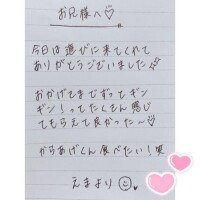 お兄様へ♡
今日は遊びに来てくれて
ありがとうございました
おかげさまでずってギン
ギン！ってたくさん感じ
てもらえて良かった〜♡
からあげくん食べたい！笑
えまより